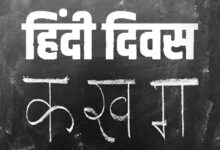 हिंदी दिवस
क ख ज्ञ